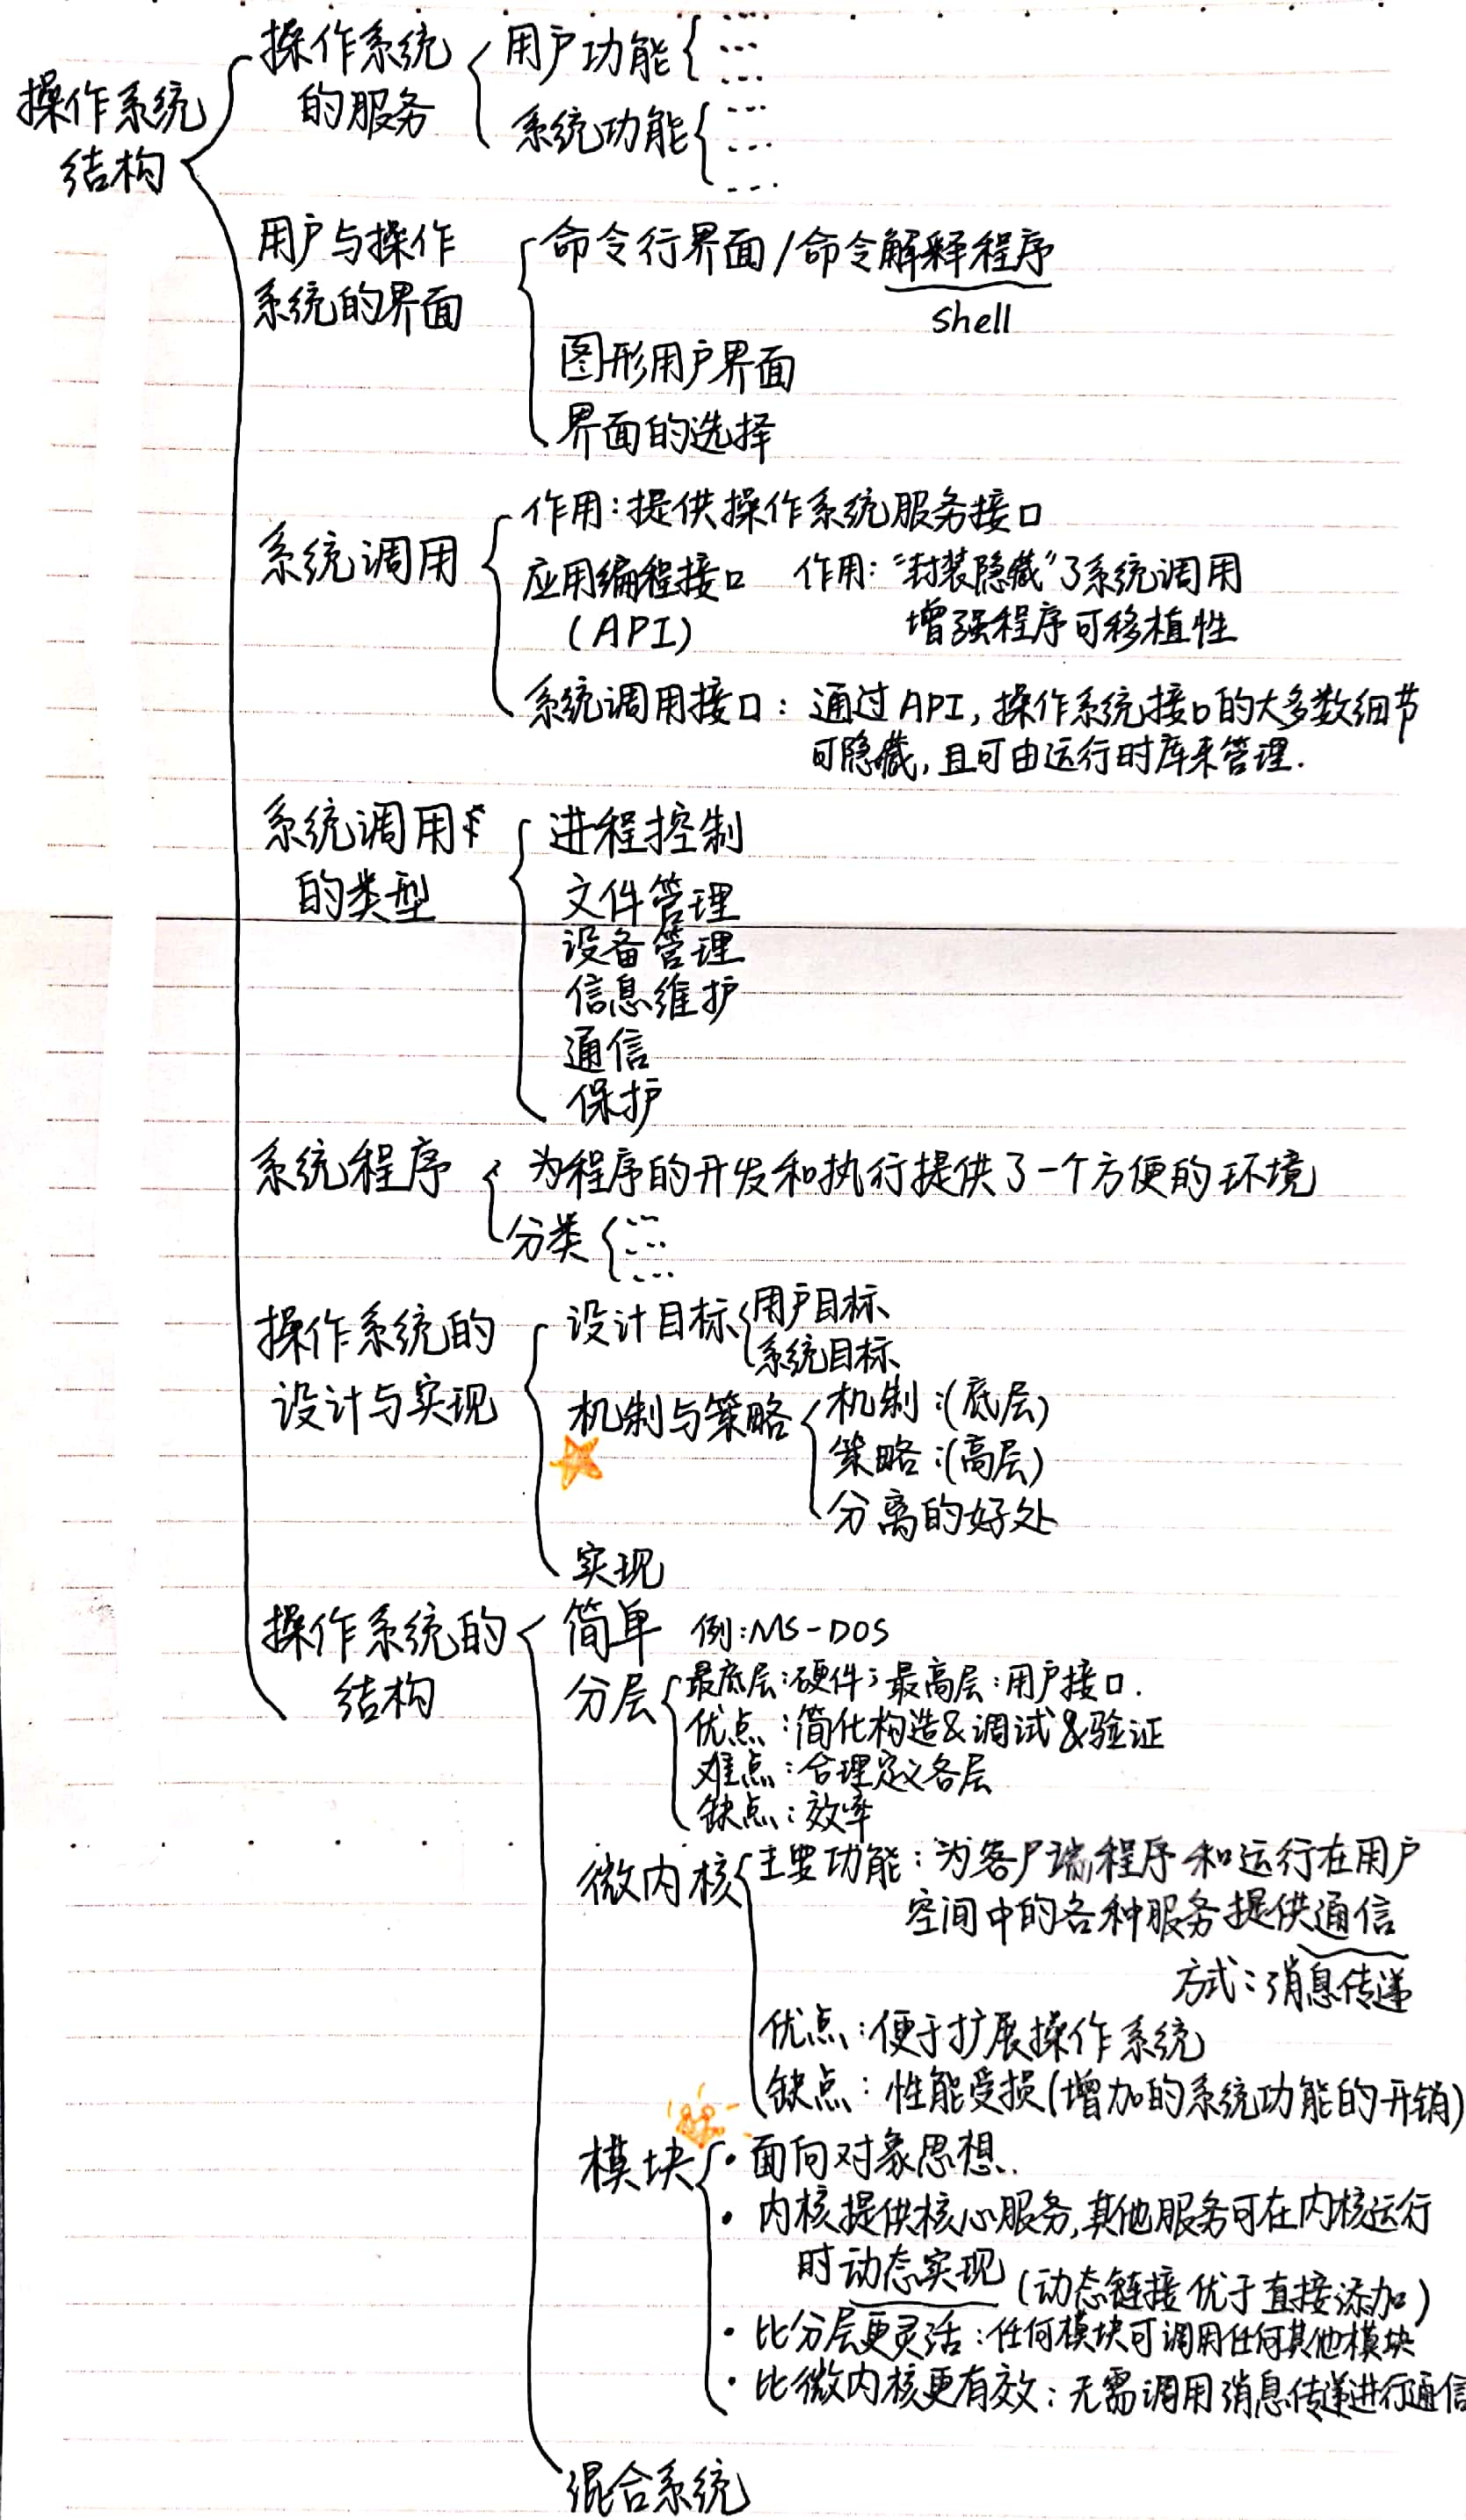 操作系统
结构
操作系统
的服务
用户功能
系统功能
用户与操作
系统的界面
命令行界面/命令解释程序
shell
图形用户界面
界面的选择
系统调用
作用:提供操作系统服务接口
应用编程接口 作用:“封装隐藏”了系统调用
(API) 增强程序可移植性
系统调用接口: 通过API,操作系统接口的大多数细节
可隐藏,且可由运行时库来管理.
系统调用
的类型
进程控制
文件管理
设备管理
信息维护
通信
保护
系统程序
为程序的开发和执行提供了一个方便的环境
分类
操作系统的
设计与实现
设计目标
用户目标
系统目标
机制与策略
机制:(底层)
策略:(高层)
分离的好处
实现
操作系统的
结构
简单 例:MS-DOS
分层
最底层:硬件;最高层:用户接口.
优点:简化构造&调试&验证
难点:合理定义各层
缺点:效率
微内核
主要功能:为客户端程序和运行在用户
空间中的各种服务提供通信
方式:消息传递
优点:便于扩展操作系统
缺点:性能受损(增加的系统功能的开销)
模块
·面向对象思想.
·内核提供核心服务,其他服务可在内核运行
时动态实现(动态链接优于直接添加)
·比分层更灵活:任何模块可调用任何其他模块
·比微内核更有效:无需调用消息传递进行通信
混合系统